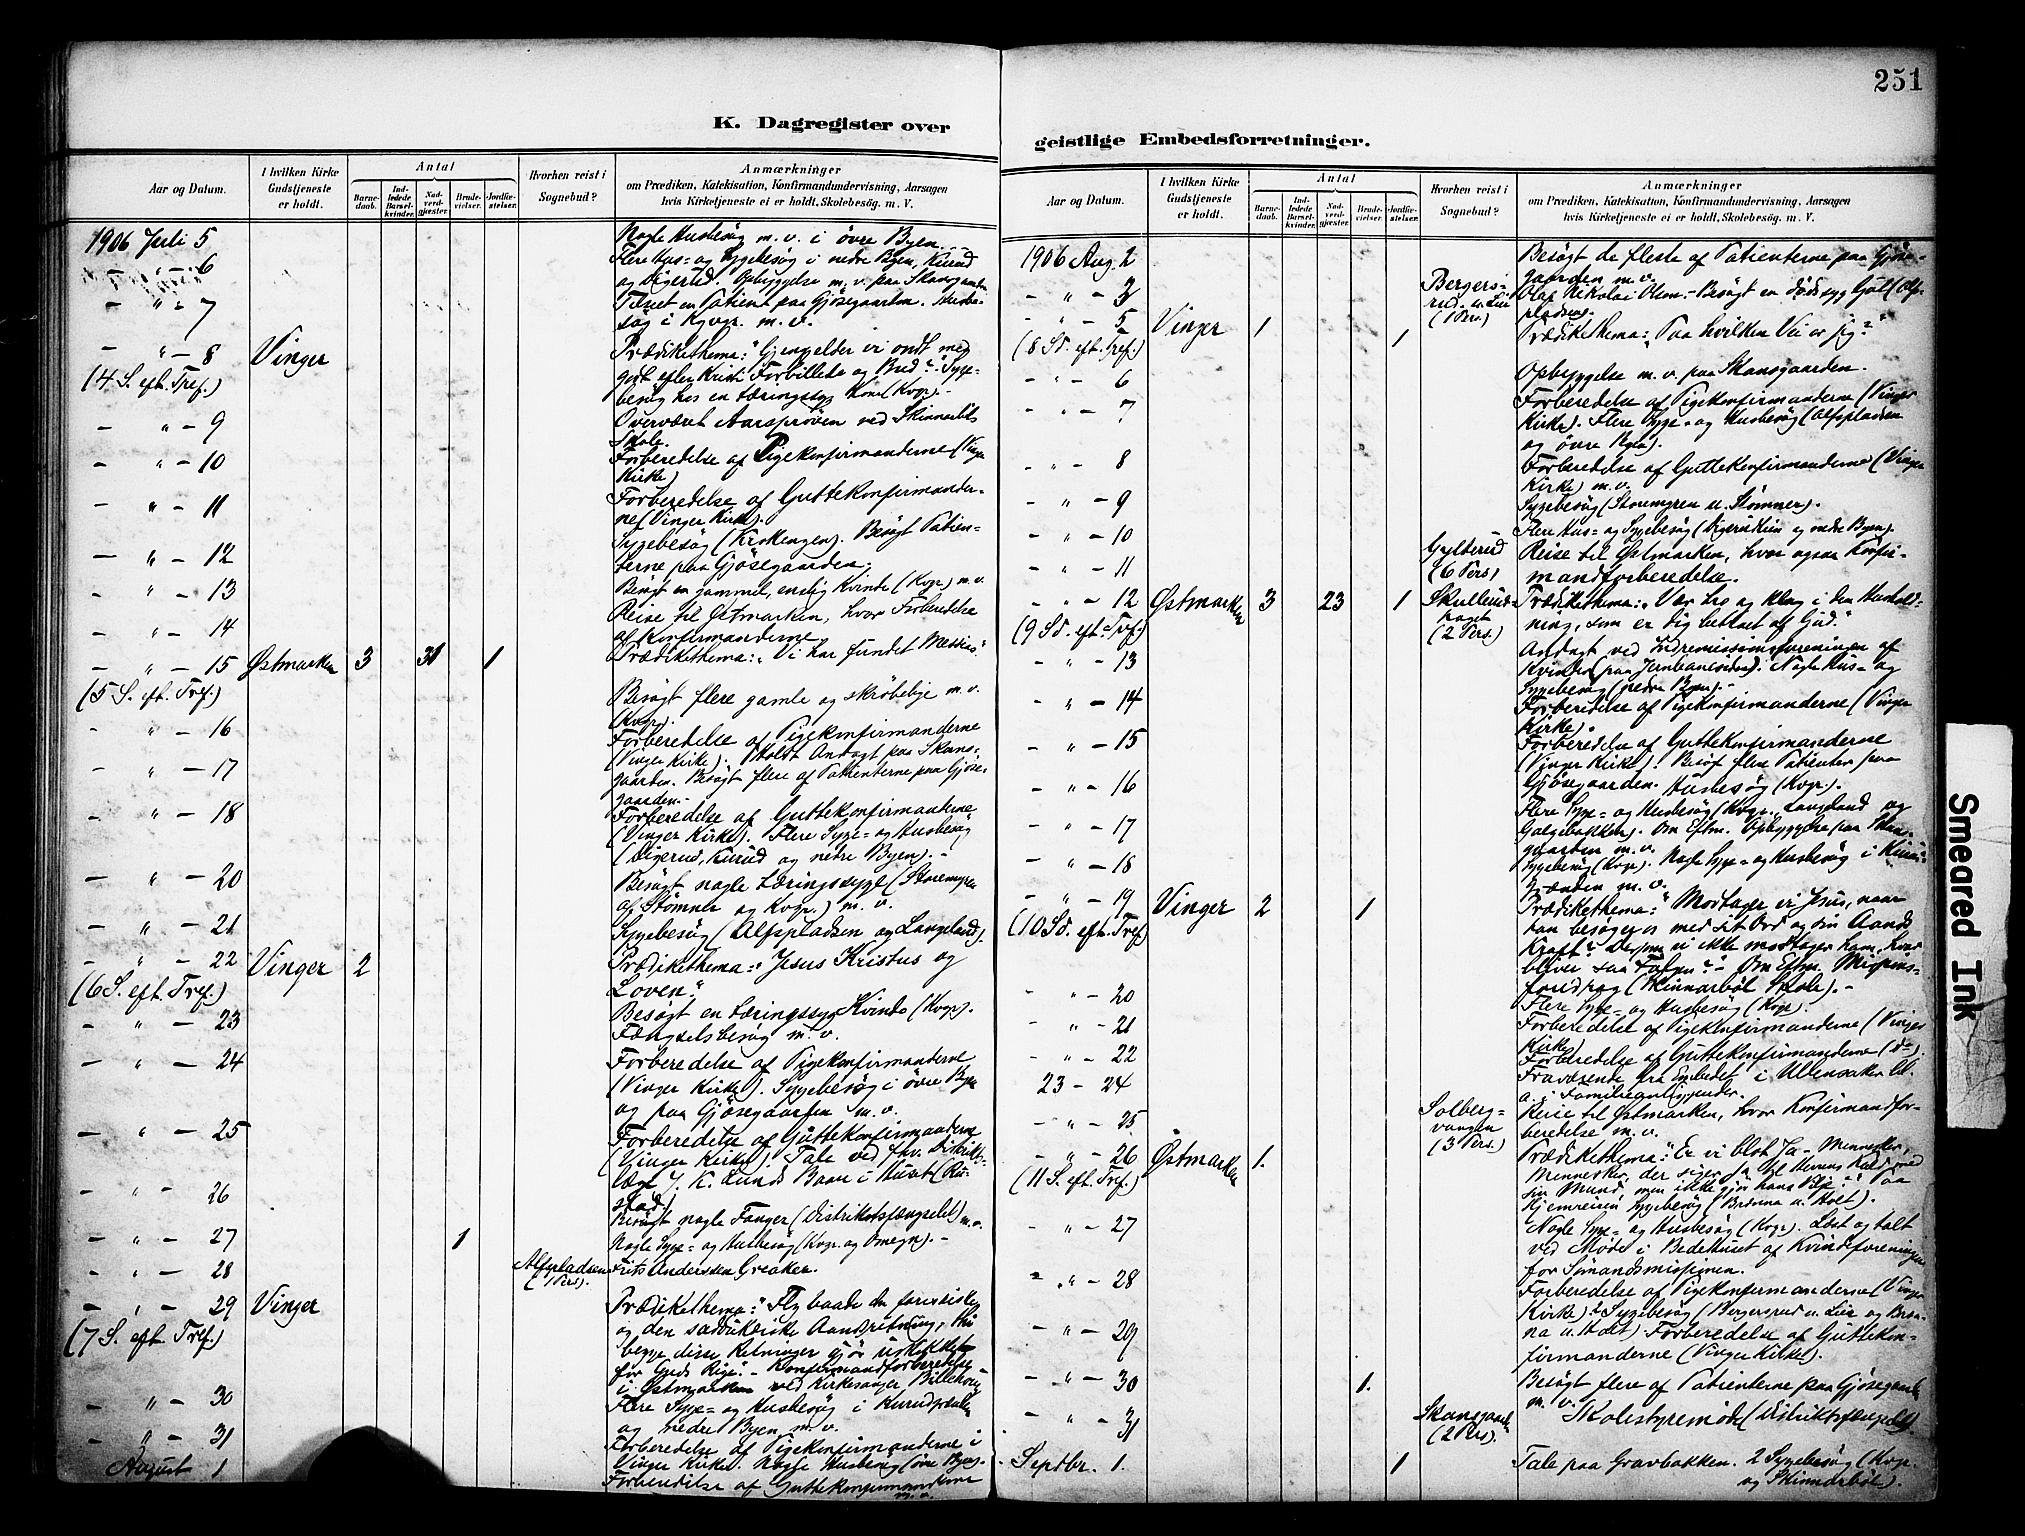 251
K. Dagregister over
geistlige Embedsforretninger.
Aar og Datum.
I hvilken Kirke
Gudstjeneste
er holdt.
Antal
Barne-
daab.
Ind-
ledede
Barsel-
kvinder.
Nad-
verd-
gjæster.
Brude-
vielser.
Jordfæ-
stelser.
Hvorhen reist i
Sognebud?
Anmærkninger
om Prædiken, Katekisation, Konfirmandundervisning, Aarsagen
hvis Kirketjeneste ei er holdt, Skolebesög. m. V.
1906 Juli 5
Nogle Husbesög m. v. i övre Byen.
— " — 6
Flere Hus- og Sygebesög i nedre Byen, Kurud
og Digerud. Opbyggelse m. v. paa Skansgaarden
— " — 7
en Patient paa Gjösegaarden. Husbe-
sög i Kgvgr. m. v.
— " — 8 Vinger
(4 S. eft. Tref.)
Prædikethema: "Gjengjelder vi ondt med
godt efter Kristi Forbillede og Bud?" Syge-
besög hos en tæringssyg Kone (Kvgr.). -
— " — 9
Overværet Aarspröven ved Skinnarböl
Skole.
— " — 10
Forberedelse af Pigekonfirmanderne (Vinger
Kirke)
— " — 11
Forberedelse af Guttekonfirmander-
ne (Vinger Kirke).
— " — 12
Sygebesög (Krokengen). Besögt Patien-
terne paa Gjösegaarden.
— " — 13
Besögt en gammel, enslig Kvinde (Kvgr.) m. v.
— " — 14
Reise til Østmarken, hvor Forberedelse
af Konfirmanderne
— " — 15 Østmarken 3 31 1
(5 S. eft. Tref.)
Prædikethema: "Vi har fundet Messias"
— " — 16
Besögt flere gamle og skröbelige m. v.
(Kvgr).
— " — 17
Forberedelse af Pigekonfirmanderne
(Vinger Kirke). Holdt Andagt paa Skans-
gaarden. Besögt flere af Patienterne paa Gjöse-
gaarden.-
— " — 18
Forberedelse af Guttekonfirmanderne
(Vinger Kirke). Flere Syge- og Husbesög
(Digerud, Kurud og nedre Byen). -
— " — 20
Besögt nogle Tæringssyge (Storemyren
af Stömner og Kvgr.) m. v.
— " — 21
Sygebesög (Alfspladsen og Langeland).
— " — 22 Vinger 2
(6 S. eft. Tref.)
Prædikethema: "Jesus Kristus og
Loven."
— " — 23
Besögt en tæringssyg Kvinde (Kvgr).
Fængselsbesög m. v.
— " — 24
Forberedelse af Pigekonfirmanderne
(Vinger Kirke). Sygebesög i övre Byen
og paa Gjösegaarden m. v.
— " — 25
Forberedelse af Guttekonfirmanderne
(Vinger Kirke). Tale ved fhv. Distrikts-
læge J. K. Lunds Baare i Huset (Ru-
stad)
— " — 26
Besögt nogle Fanger (Distriktsfængselet) m. v.
— " — 27 1
Nogle Syge- og Husbesög (Kvgr. og Omegn). -
— " — 28 Alfspladsen
(1 Pers).
Frits Anderssen Greaker.
— " — 29 Vinger
(7 S. eft Tref.)
Prædikethema: "Fly baade den farisæiske
og den saddukæiske Aandsretning, thi
begge disse Retninger gjör uskikket
for Guds Rige." - Konfirmandforberedelse
i Østmarken ved Kirkesanger Billehoug
— " — 30
Flere Syge- og Husbesög i Kurudgrænden
og nedre Byen m. v.
— " — 31
Forberedelse af Pigekonfirmanderne i
Vinger Kirke. Nogle Husbesög (övre Byen).
August 1
Forberedelse af Guttekonfirmanderne
m. v.
Aar og Datum.
I hvilken Kirke
Gudstjeneste
er holdt.
Antal
Barne-
daab.
Ind-
ledede
Barsel-
kvinder.
Nad-
verd-
gjæster.
Brude-
vielser.
Jordfæ-
stelser.
Hvorhen reist i
Sognebud?
Anmærkninger
om Prædiken, Katekisation, Konfirmandundervisning, Aarsagen
hvis Kirketjeneste ei er holdt, Skolebesög. m. V.
1906 Aug. 2
Besögt de fleste af Patienterne paa Gjöse-
gaarden m. v.
— " — 3
Bergers-
rud u. Lier
(1 Pers.)
Olaf Nikolai Olsen. - Besögt en dödssyg Gut (Alfs-
pladsen.
— " — 5 Vinger 1 1
(8 Sd. eft. Tref.)
Prædikethema: "Paa hvilken Vei er jeg?"
— " — 6
Opbyggelse m. v. paa Skansgaarden.
— " — 7
Forberedelse af Pigekonfirmanderne (Vinger
Kirke). Flere Syge- og Husbesög (Alfspladsen
og övre Byen).
— " — 8
Forberedelse af Guttekonfirmanderne (Vinger
Kirke) m. v.
— " — 9
Sygebesög (Storemyren u. Stömner).
— " — 10
Flere Hus- og Sygebesög ( og nedre Byen).
— " — 11
Gylterud
(6 Pers)
Reise til Østmarken, hvor ogsaa Konfir-
mandforberedelse.
— " — 12 Østmarken 3 23 1
(9 Sd. eft. Tref.)
Skullerud-
haget
(2 Pers.)
Prædikethema: "Vær tro og klog i den Hushold-
ning, som er dig betroet af Gud."
— " — 13
Andagt ved Indremissionsforeningen af
Kvinder (paa Jernbanesiden). Nogle Hus- og
Sygebesög (nedre Byen). -
— " — 14
Forberedelse af Pigekonfirmanderne (Vinger
Kirke).
— " — 15
Forberedelse af Guttekonfirmanderne
(Vinger Kirke). Besög flere Patienter paa
Gjösegaarden. Husbesög (Kvgr.).
— " — 16
Flere Syge- og Husbesög (Kvgr., Langeland og
Galgebakken). Om Eftm. Opbyggelse paa Skans-
gaarden m. v.
— " — 17
— " — 18
Sygebesög (Kvgr). Nogle Syge- og Husbesög i Kurud-
grænden m. v.
— " — 19 Vinger 2 1
(10 Sd. eft. Tref.)
Prædikethema: "Modtager vi Jesus, naar
han besöger os med sit Ord og sin Aands
Kraft? Dersom vi ikke modtager ham, hvad
bliver saa Fölgen?" - Om Eftm. Missions-
foredrag (Skinnarböl Skole). -
— " — 20
Flere Syge- og Husbesög (Kvgr).
— " — 21
Forberedelse af Pigekonfirmanderne (Vinger
Kirke)
— " — 22
Forberedelse af Guttekonfirmanderne (do).
23 — 24
Fraværende fra Embedet i Ullensaker bl.
a. i Familieanliggender.
— " — 25
Solberg-
vangen
(3 Pers.)
Reise til Østmarken, hvor Konfirmandfor-
beredelse m. v.
— " — 26 Østmarken 1.
(11 S. eft. Tref.)
Prædikethema: "Er vi blot Ja-Mennesker,
Mennesker, der siger Ja til Herrens Kald med
sin Mund, men ikke gjör hans Vilje?" Paa
Hjemreisen Sygebesög (Brödrena u. Holt).
— " — 27
Nogle Syge- og Husbesög (Kvgr). Læst og talt
ved Möde i Bedehuset af Kvindeforeningen
for Sömandsmissionen.
— " — 28
Forberedelse af Pigekonfirmanderne (Vinger
Kirke). Sygebesög (Bergersrud u. Lier og
u. Holt)
— " — 29
Forberedelse af Guttekon-
firmanderne (Vinger Kirke).
— " — 30 1.
Besögt flere af Patienterne paa Gjösegaarden
m. v.
— " — 31
Skansgaarden
(2 Pers).
Skolestyremöde (Distriktsfængselet).
Septbr. 1. 1
Tale paa Gravbakken. 2 Sygebesög (Kvgr.
og Skinnarböl).
Smeared Ink